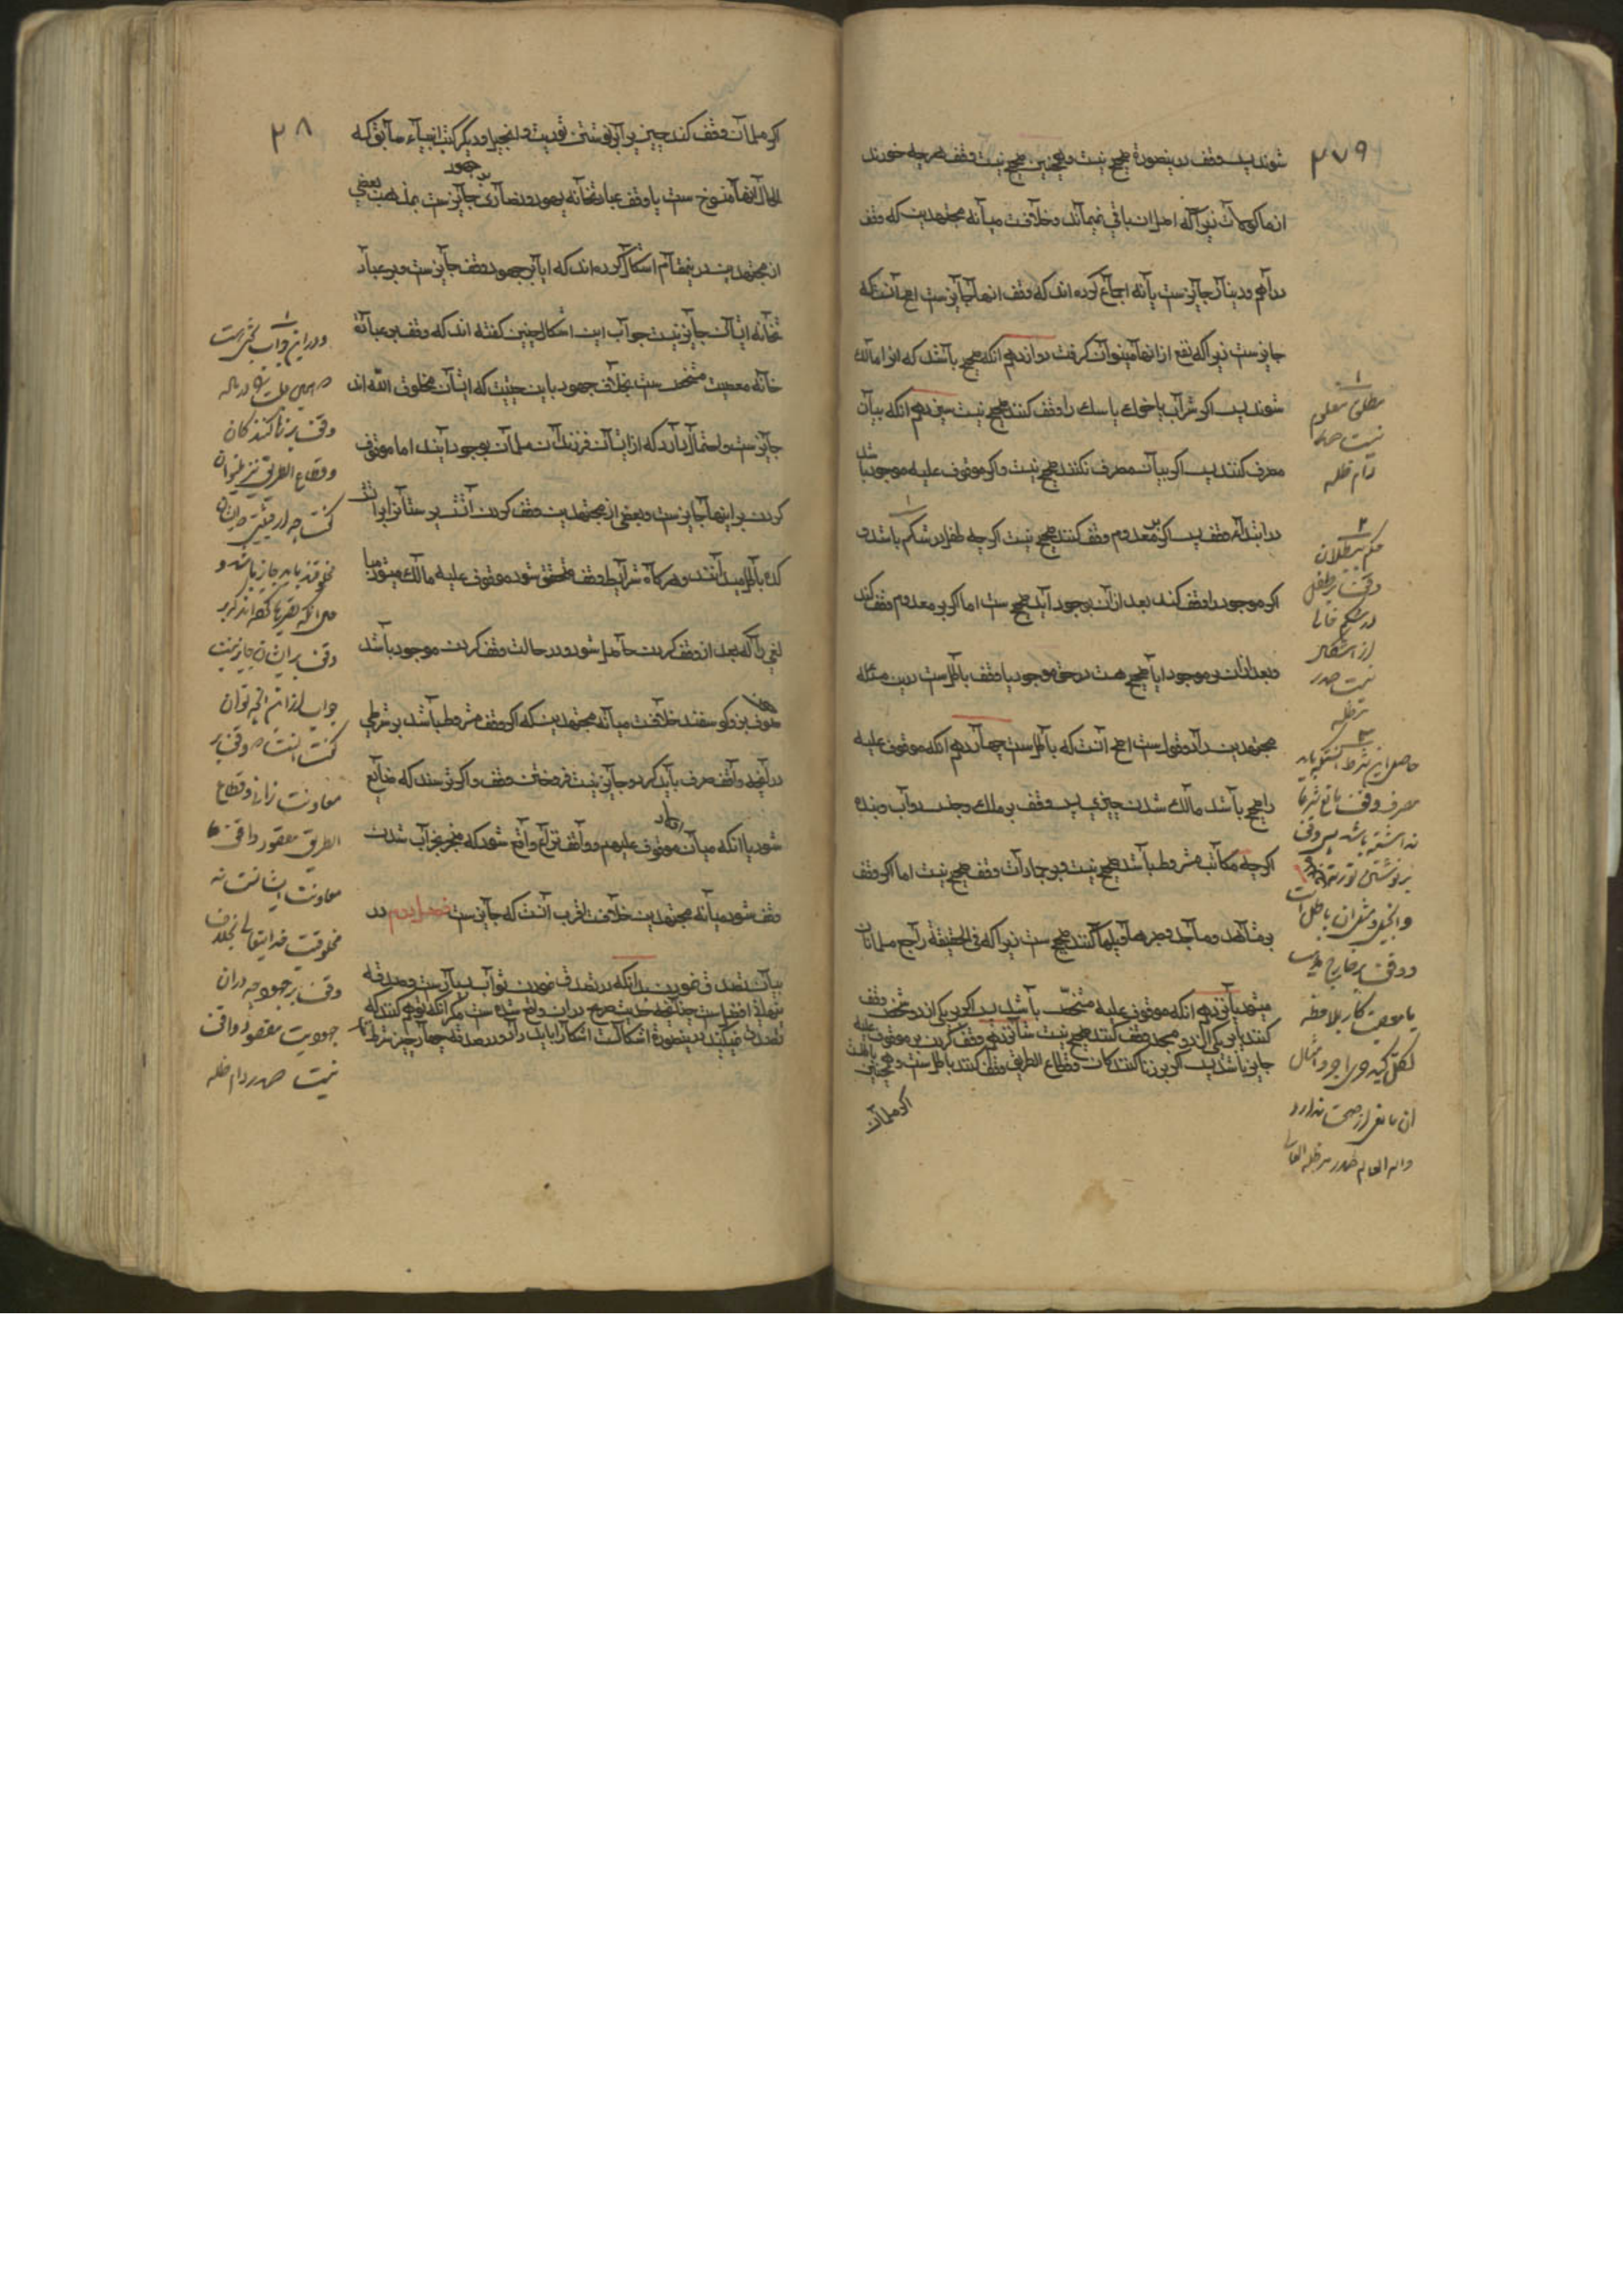 ۲۷۹
شوند پس وقف درینصورة صحیح نیست و همچنین صحیح نیست وقف هرچه خورند
از ماکولات زیراکه اصل ان باقی نمیماند و خلافست میانه مجتهدین که وقف
دراهم و دینار جایزست یا نه اجماع کرده اند که وقف انها جایزست اصح آنست که
جایزست زیراکه نفع از انها میتوان کرفت دوازدهم انکه صحیح باشد که انرا مالک
شوند پس اکر شراب یا خوک یا سک را وقف کنند صحیح نیست سیزدهم انکه بیان
مصرف کنند پس اکر بیان مصرف نکنند صحیح نیست و اکر موقوف علیه موجود باشد
در ابتداء وقف پس اکر بر معدوم وقف کنند صحیح نیست اکرچه طفل در شکم باشد و
اکر موجود را وقف کند بعد از آن بوجود آید صحیح ست اما اکر بر معدوم وقف کند
و بعد ازان بر موجود ایا صحیح هست در حق موجود یا وقف باطل ست درین مسئله
مجتهدین را دو قول ست اصح آنست که باطل ست چهاردهم انکه موقوف علیه
را صحیح باشد مالک شدن چیزی پس وقف بر ملک و جن و دواب و بنده
اکرچه مکاتب مشروط باشد صحیح نیست و بر جمادات وقف صحیح نیست اما اکر وقف
بر مشاهد و مساجد و جسرها و پلها کنند صحیح ست زیراکه فی الحقیقة راجع مسلمانان
میشود پانزدهم انکه موقوف علیه مشخص باشد پس اکر بر یکی از دو شخص وقف
کنند یا بر یکی از دو مسجد وقف کنند صحیح نیست شانزدهم وقف کردن بر موقوف علیه
جایز باشد پس اکر بر زنا کنندکان و قطاع الطریق وقف کنند باطل ست و همچنین
اکر مسلمان
۱
مطلق معلوم
نیست صدر
دام ظله
۲
حکم ببطلان
وقف بر طفل
در شکم خالی
از اشکال
نیست صدر
مد ظله
۳
حاصل این شرط انستکه باید
مصرف وقف مانع شرعی
نداشته باشد پس وقف
بر نوشتن توریة
و انجیل و مثل ان باطل است
و وقف بر خارج مذهب
یا معصیت کار بلا ملاحظه
لکل کبد حری اجر و امثال
ان مانعی از صحت ندارد
والله العالم صدر مد ظله العالی
۲۸
اکر مسلمان وقف کند چیزی برای نوشتن توریت و انجیل و دیکر کتب انبیاء سابق که
الحال انها منسوخ ست یا وقف عبادتخانه یهود و نصاری جایزست بمذهب بعضی
بر جهود
از مجتهدین درینمقام اشکال کرده اند که ایا بر جهود وقف جایزست و بر عباد
تخانه ایشان جایز نیست جواب این اشکال چنین کفته اند که وقف بر عبادت
خانه معصیت مشخص ست بخلاف جهود باین حیثیت که ایشان مخلوق الله اند
جایزست و احتمال دارد که از ایشان فرزندان مسلمان بوجود ایند اما موقوف
کردن بر اینها جایزست و بعضی از مجتهدین وقف کردن آتش پرستانرا برای
کده باطل میدانند و هرکاه شرایط وقف متحقق شود موقوف علیه مالک میشود مبا
لغی را که بعد از وقف کردن حاصل شود و در حالت وقف کردن موجود باشد
چون بز و کوسفند خلافست میانه مجتهدین که اکر وقف مشروط باشد بر شرطی
در آنچه واقف صرف باید کرد و جایز نیست فروختن وقف و اکر ترسند که ضایع
شود یا انکه میان موقوف علیهم و واقف نزاع واقع شود که منجر بخراب شدن
وقف شود میانه مجتهدین خلافست اقرب آنست که جایزست فصل دوم در
بیان تصدق نمودن بدانکه در تصدق نمودن ثواب بسیارست و صدقه
پنهان افضل ست چنانکه حدیث صریح در ان واقع شده ست مکر انکه توهم کنند که
تصدق نمیکند درینصورة اشکارا بهتر ست اشکارا باید داد و در صدقه چهار چیز شرط ست
۱
و در این جواب بحثی است
وقف بر زنا کنندکان
و قطاع الطریق نیز میتوان
کفت چه از حیثیتی که ایشان
مخلوقند باید جایز باشد و
حال انکه تصریحا کفته اند که بر
وقف بر ایشان جایز نیست
جواب از این انچه توان
کفت اینست که وقف بر
معاونت زناة و قطاع
الطریق مقصود واقف
معاونت ایشانست نه
مخلوقیت خدایتعالی بخلاف
وقف بر جهود چه دران
جهودیت مقصود واقف
نیست صدر دام ظله